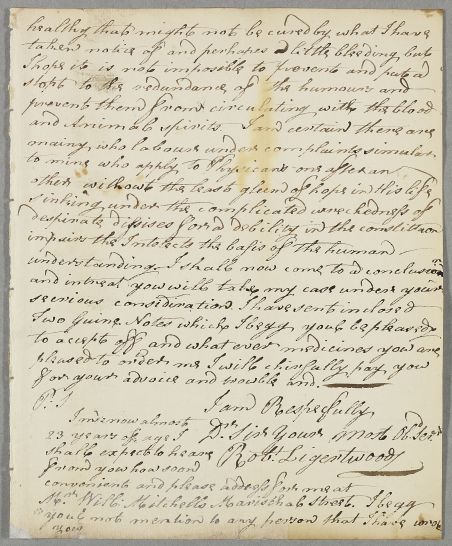 healthy that might not be cured by what I have
taken notice off and perhapes a little bleeding but
I hope it is not imposible to prevent and put a
stopt to the redundance of the humours and
prevent them from circulating with the blood
and Animal spirits. I am certain there are
mainy who labour under complaints simular
to mine who apply to Physicans one after an
other without the least gleem of hope in this life
sinking under the complicated wrechedness of
despirate disises for a debility in the constitution
impairs the Intelects the basis of the human
understanding I shall now come to a conclusion
and intreat you will take my case under your
serious consideration. I have sent inclosed
Two Guine Notes which I begg you'l be pleased
to accept off and what ever medicines you are
pleased to order me I will chirfully pay you
for your advice and trouble and.
P.S I am Respectfully
I me now almost
23 years of age I Dr. Sir Your Most Ob. Sert
shall expect to heare Robt. Ligertwood
from you how soon
convenient and please adress for me at
Mr. Will. Mitchells Marischal Street. I begg
you'l not mention to any person that I have wrote
you